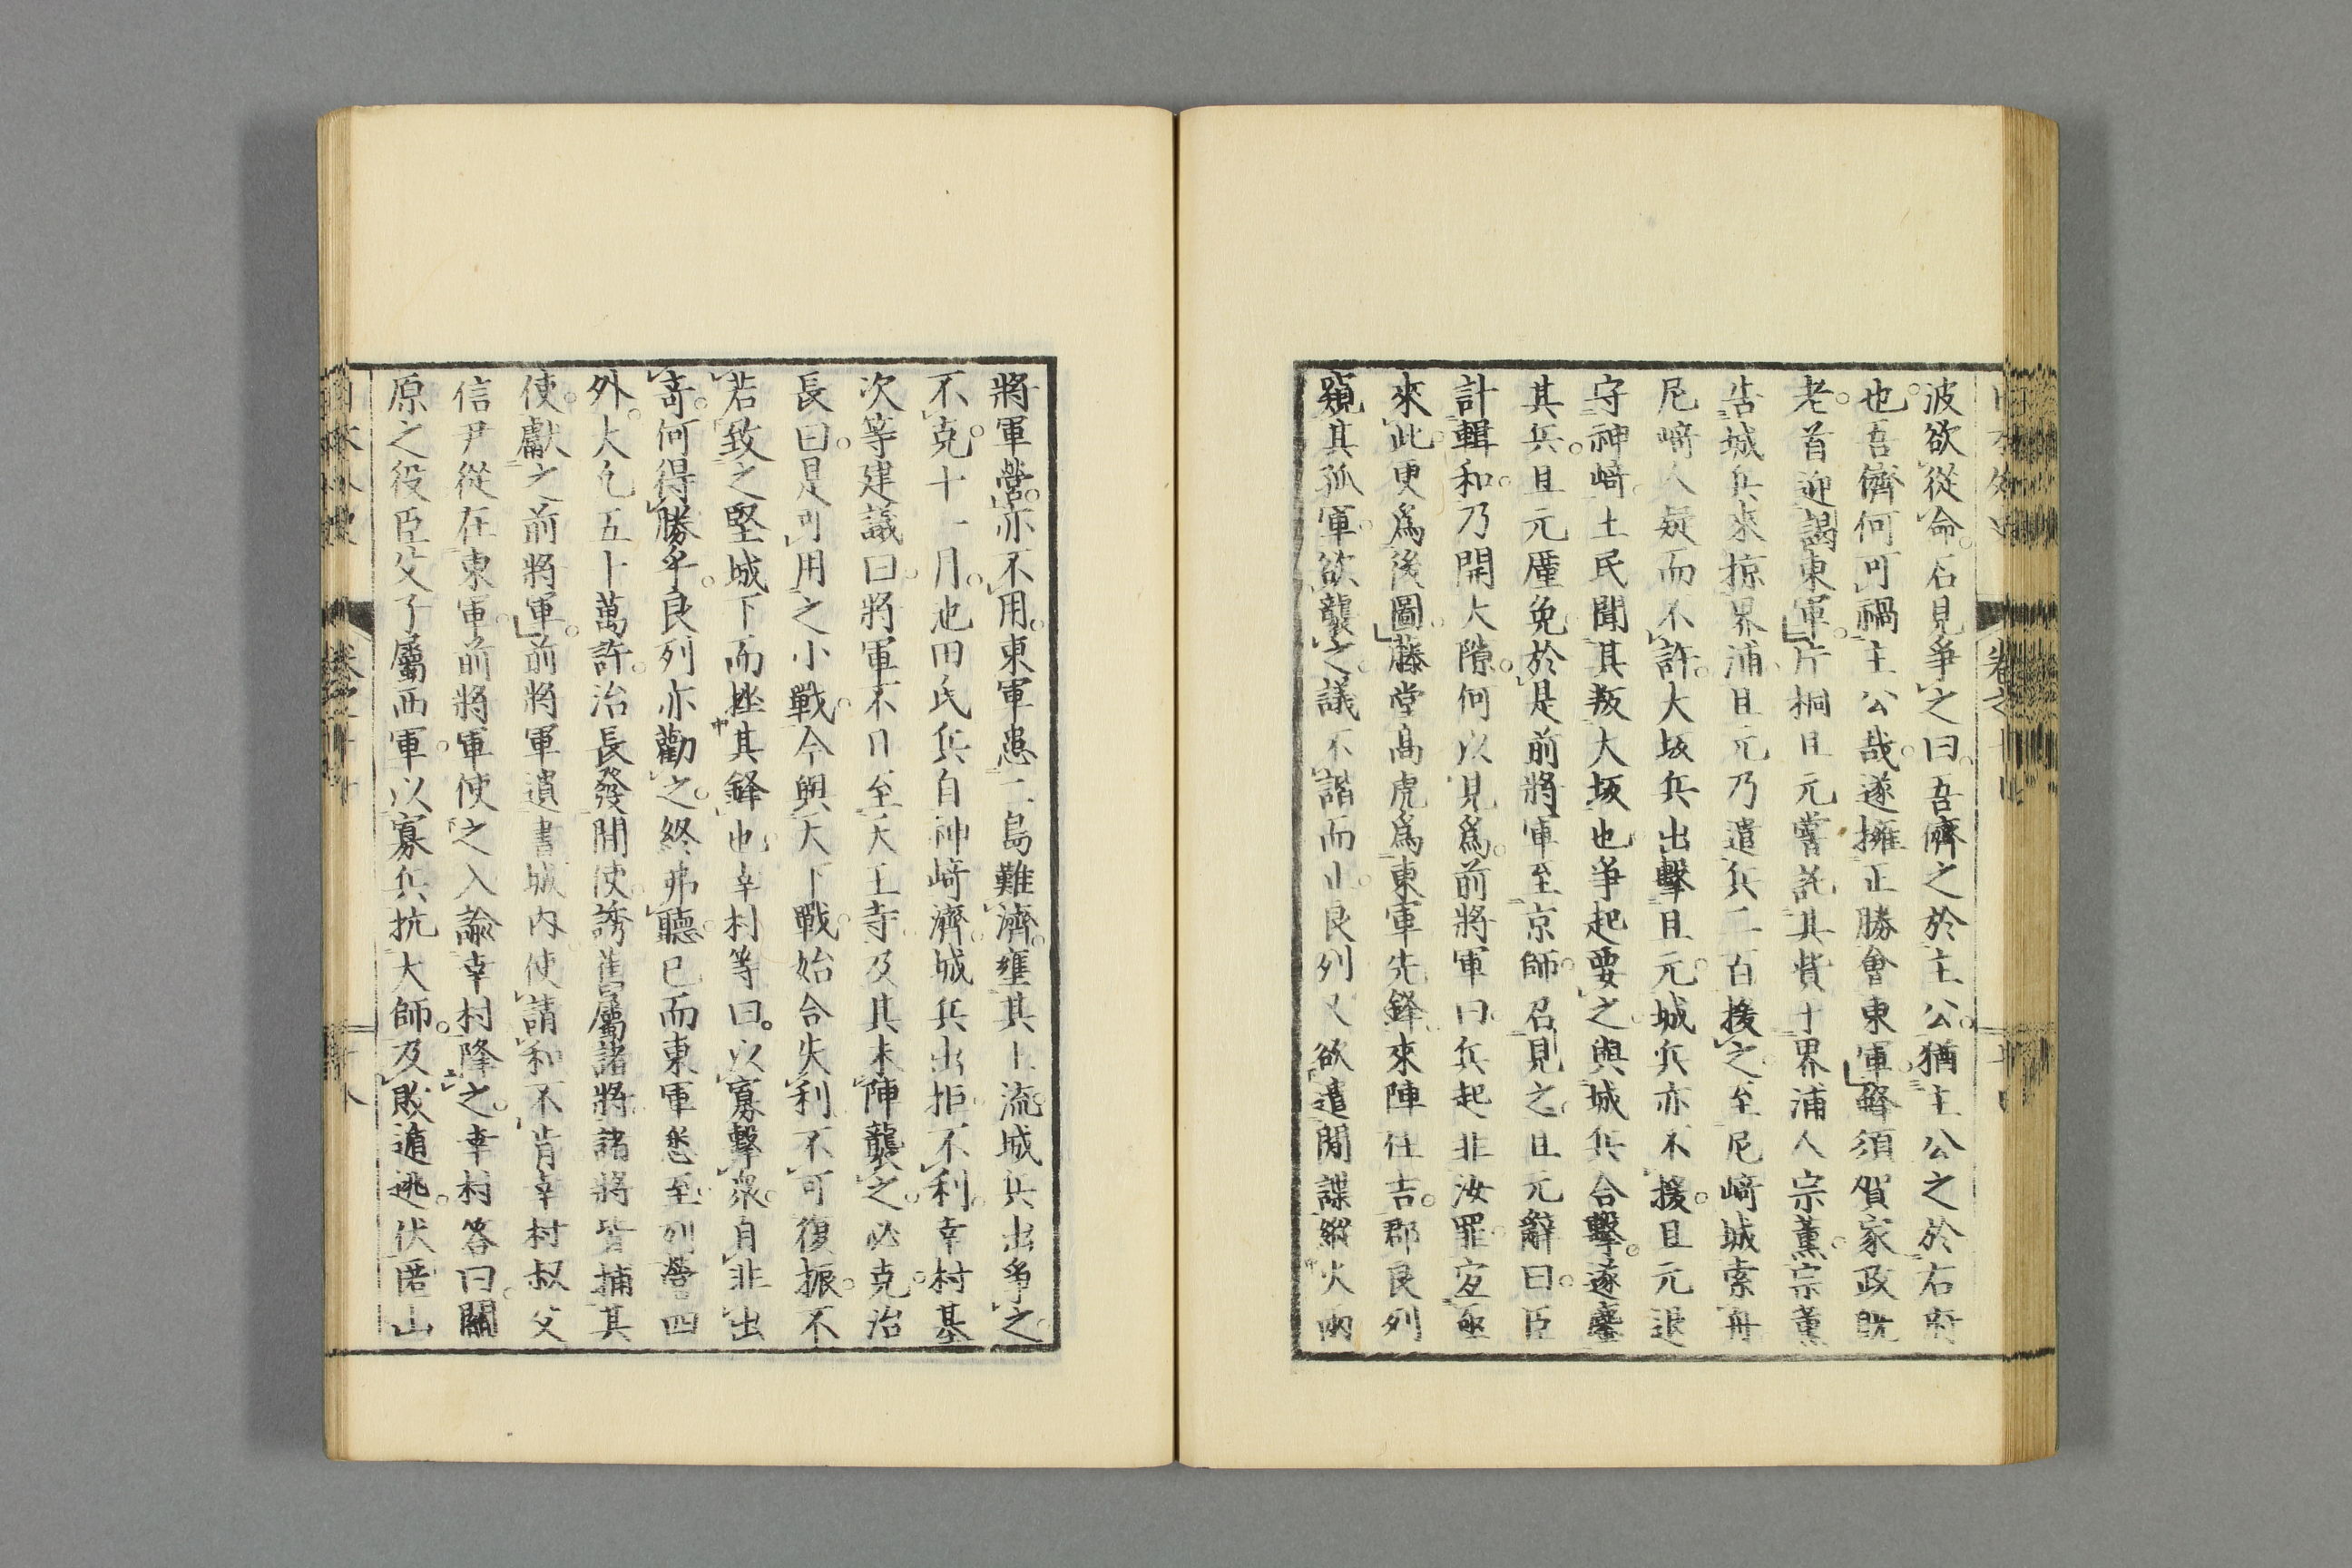 波欲從命。石見爭之曰。吾儕之於主公。猶主公之於右府
也。吾儕何可禍主公哉。遂擁正勝會東軍。蜂須賀家政既
老。首迎謁東軍。片桐且元嘗託其貲于界浦人宗薰。宗薰
告城兵來掠界浦。且元乃遣兵二百援之。至尼﨑城索舟
尼﨑人疑而不許。大坂兵出擊且元。城兵亦不援。且元退
守神﨑。土民聞其叛大坂也。爭起要之。與城兵合擊。遂鏖
其兵。且元厪免。於是前將軍至京師。召見之。且元辭曰。臣
計輯和。乃開大隙。何以見爲。前將軍曰。兵起非汝罪。宜亟
來此更爲後圖。藤堂高虎爲東軍先鋒。來陣住吉郡。良列
窺其孤軍。欲襲之。議不諧而止。良列又欲遣閒諜縱火兩
將軍營。亦不用。東軍患二島難濟。壅其上流。城兵出爭之。
不克。十一月。池田氏兵自神﨑濟。城兵出拒。不利。幸村基
次等建議曰。將軍不日至天王寺。及其未陣襲之。必克。治
長曰。是可用之小戰。今與天下戰。始合失利。不可復振。不
若致之堅城下而挫其鋒也。幸村等曰。以寡擊衆。自非出
奇。何得勝乎。良列亦勸之。終弗聽。已而東軍悉至。列營四
外。大凡五十萬許。治長發閒使誘舊屬諸將。諸將皆捕其
使。獻之前將軍。前將軍遺書城內。使請和。不肯。幸村叔父
信尹從在東軍。前將軍使之入諭幸村降之。幸村答曰。關
原之役。臣父子屬西軍。以寡兵抗大師。及敗遁逃。伏匿山